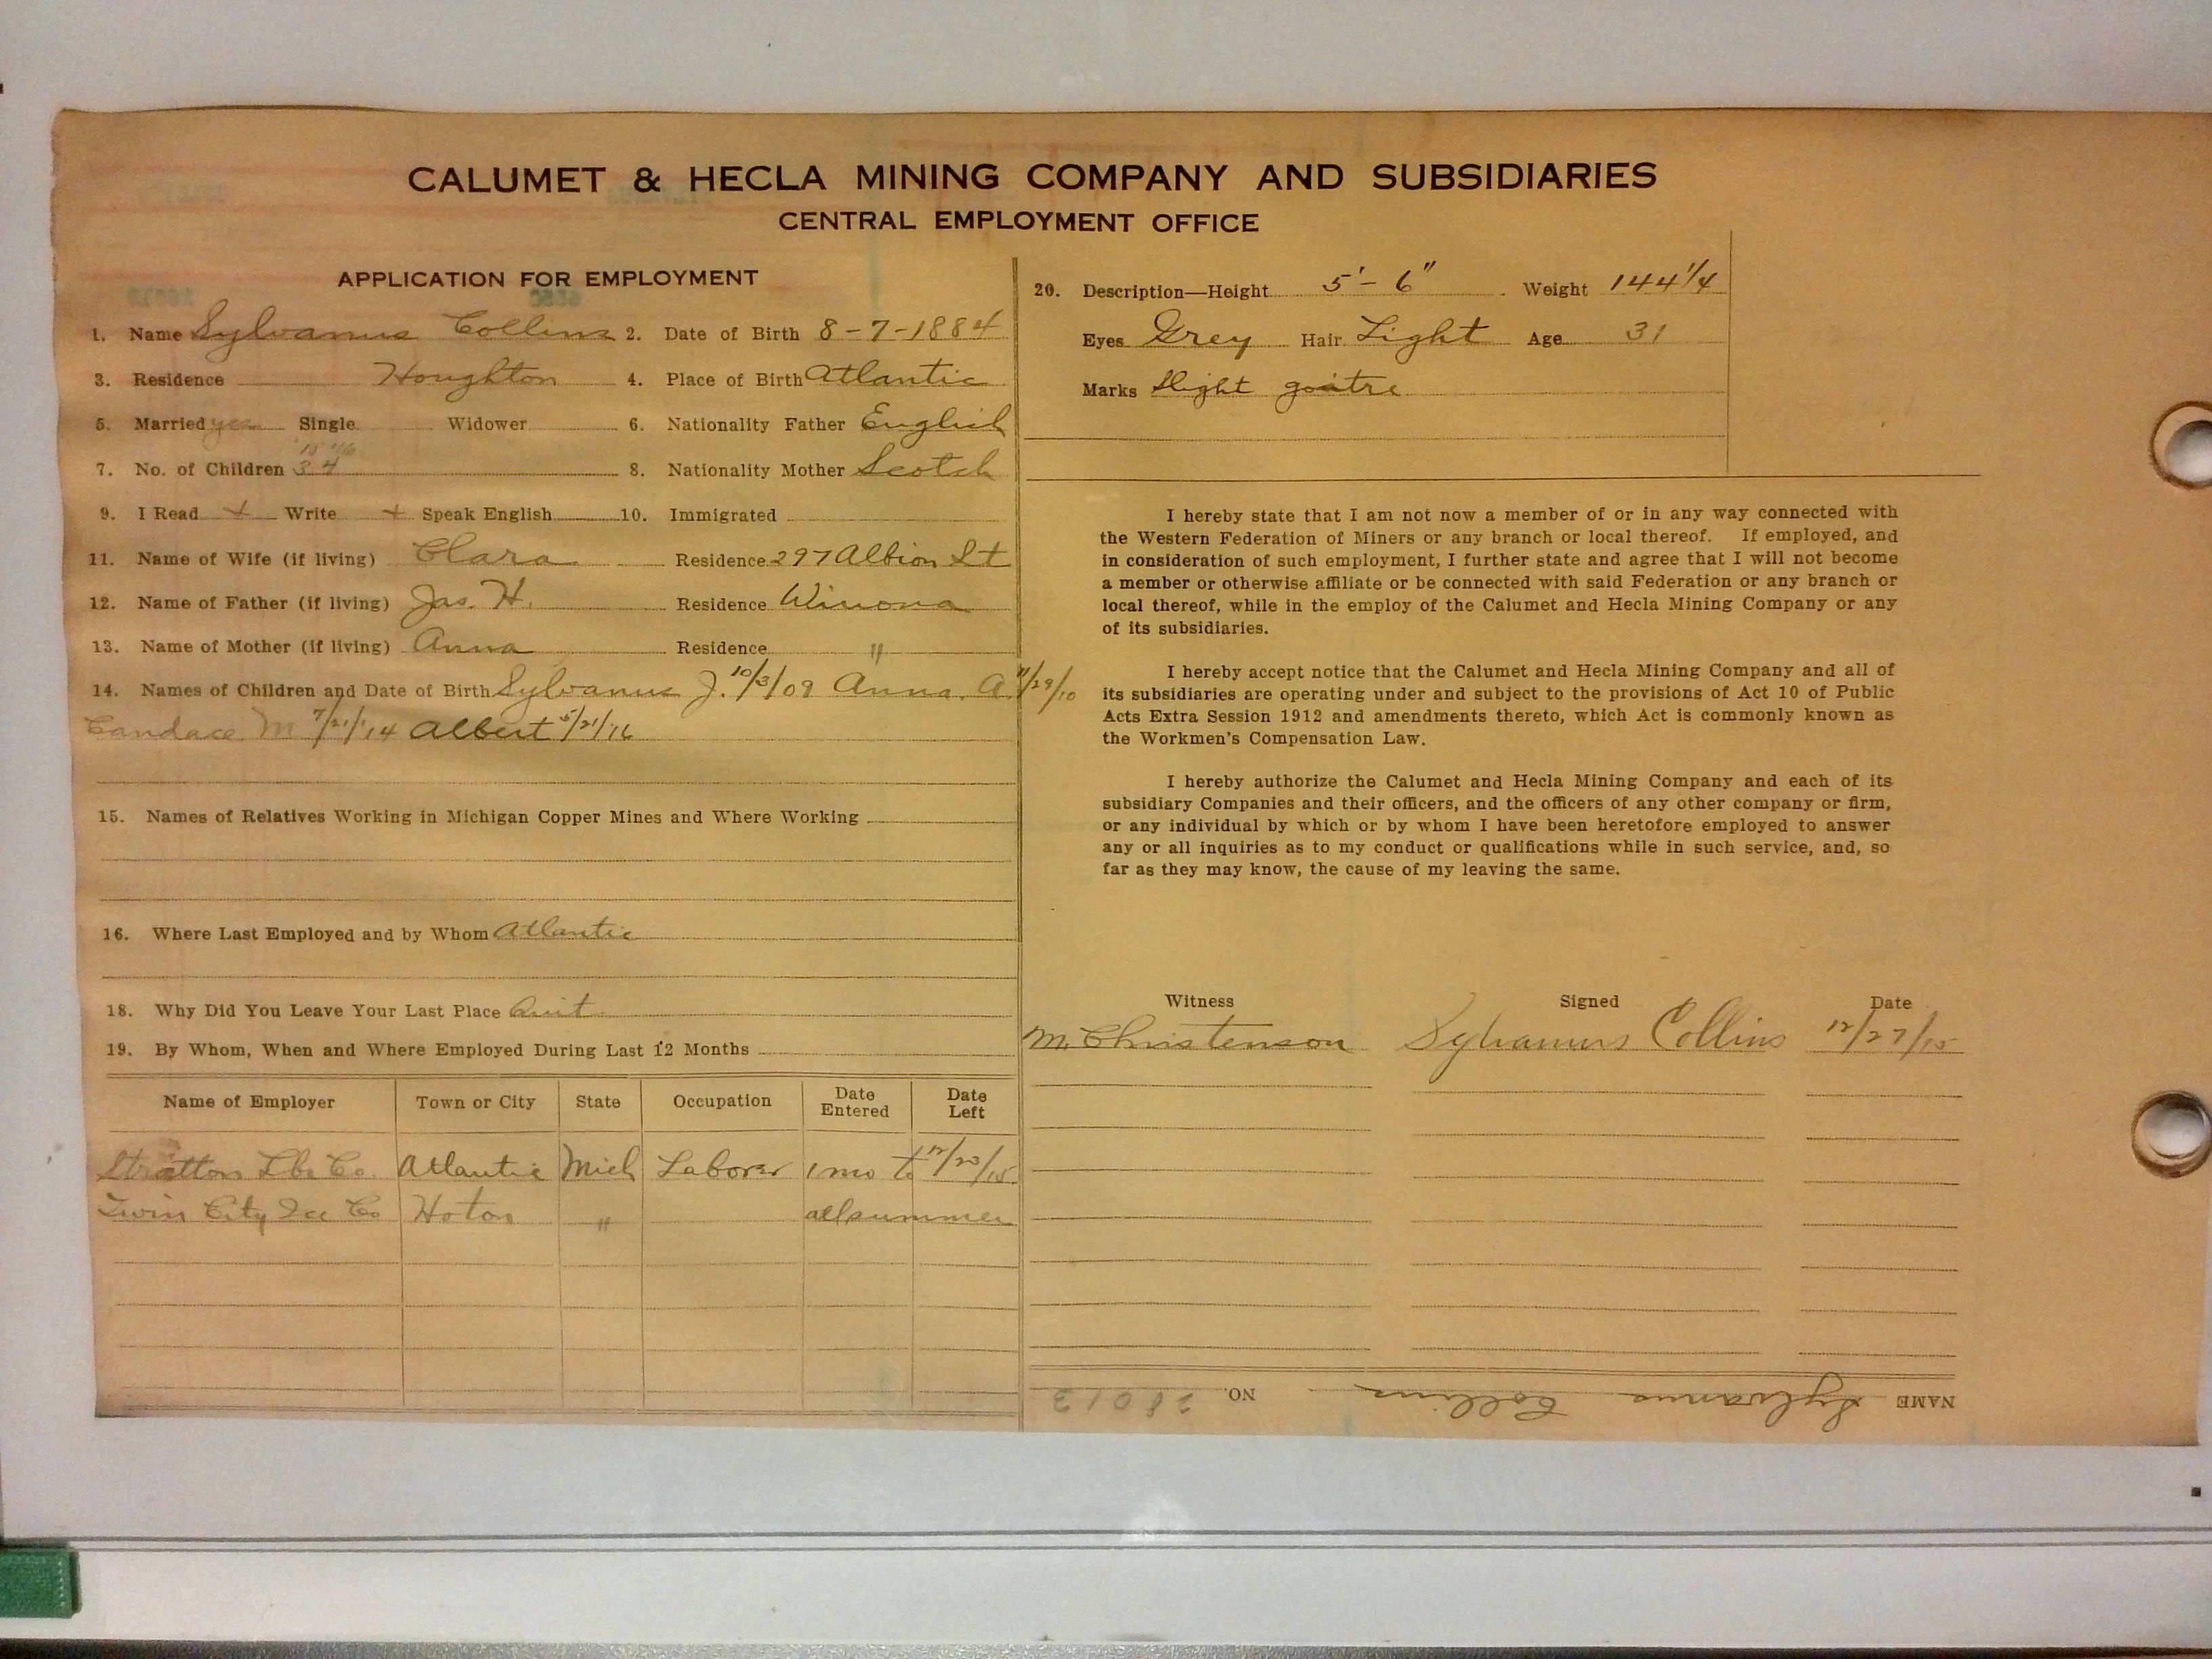 CALUMET & HECLA MINING COMPANY AND SUBSIDIARIES
CENTRAL EMPLOYMENT OFFICE
APPLICATION FOR EMPLOYMENT
1. Name Sylvanus Collins 2. Date of Birth 8-7-1884
3. Residence Houghton 4. Place of Birth Atlantic
5. Married yes Single Widower 6. Nationality Father English
'15 '16
7. No. of Children 3 4 8. Nationality Mother Scotch
9. I Read + Write + Speak English 10. Immigrated
11. Name of Wife (if living) Clara Residence 297 Albion St
12. Name of Father (if living) Jas. H. Residence Winona
13. Name of Mother (if living) Anna Residence "
14. Names of Children and Date of Birth Sylvanus J. 10/3/09 Anna. A. 11/29/10
Candace M 7/21/14 Albert 5/21/16
15. Names of Relatives Working in Michigan Copper Mines and Where Working
16. Where Last Employed and by Whom Atlantic
18. Why Did You Leave Your Last Place Quit
19. By Whom, When and Where Employed During Last 12 Months
Name of Employer Town or City State Occupation Date Entered Date Left
Stratton Lbr Co. Atlantic Mich Laborer 1 mo to 12/23/15
Twin City Ice Co Hoton " all summer
20. Description—Height 5'-6" Weight 144 1/4
Eyes Grey Hair Light Age 31
Marks Slight goitre
I hereby state that I am not now a member of or in any way connected with
the Western Federation of Miners or any branch or local thereof. If employed, and
in consideration of such employment, I further state and agree that I will not become
a member or otherwise affiliate or be connected with said Federation or any branch or
local thereof, while in the employ of the Calumet and Hecla Mining Company or any
of its subsidiaries.
I hereby accept notice that the Calumet and Hecla Mining Company and all of
its subsidiaries are operating under and subject to the provisions of Act 10 of Public
Acts Extra Session 1912 and amendments thereto, which Act is commonly known as
the Workmen's Compensation Law.
I hereby authorize the Calumet and Hecla Mining Company and each of its
subsidiary Companies and their officers, and the officers of any other company or firm,
or any individual by which or by whom I have been heretofore employed to answer
any or all inquiries as to my conduct or qualifications while in such service, and, so
far as they may know, the cause of my leaving the same.
Witness Signed Date
M. Christenson Sylvanus Collins 12/27/15
NAME Sylvanus Collins NO. 28013